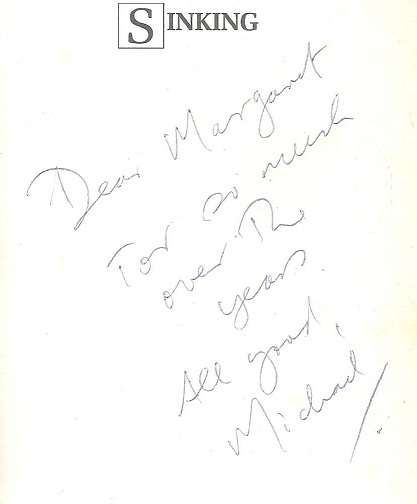 SINKING
Dear Margaret
For so much
over the
years.
All good,
Michael